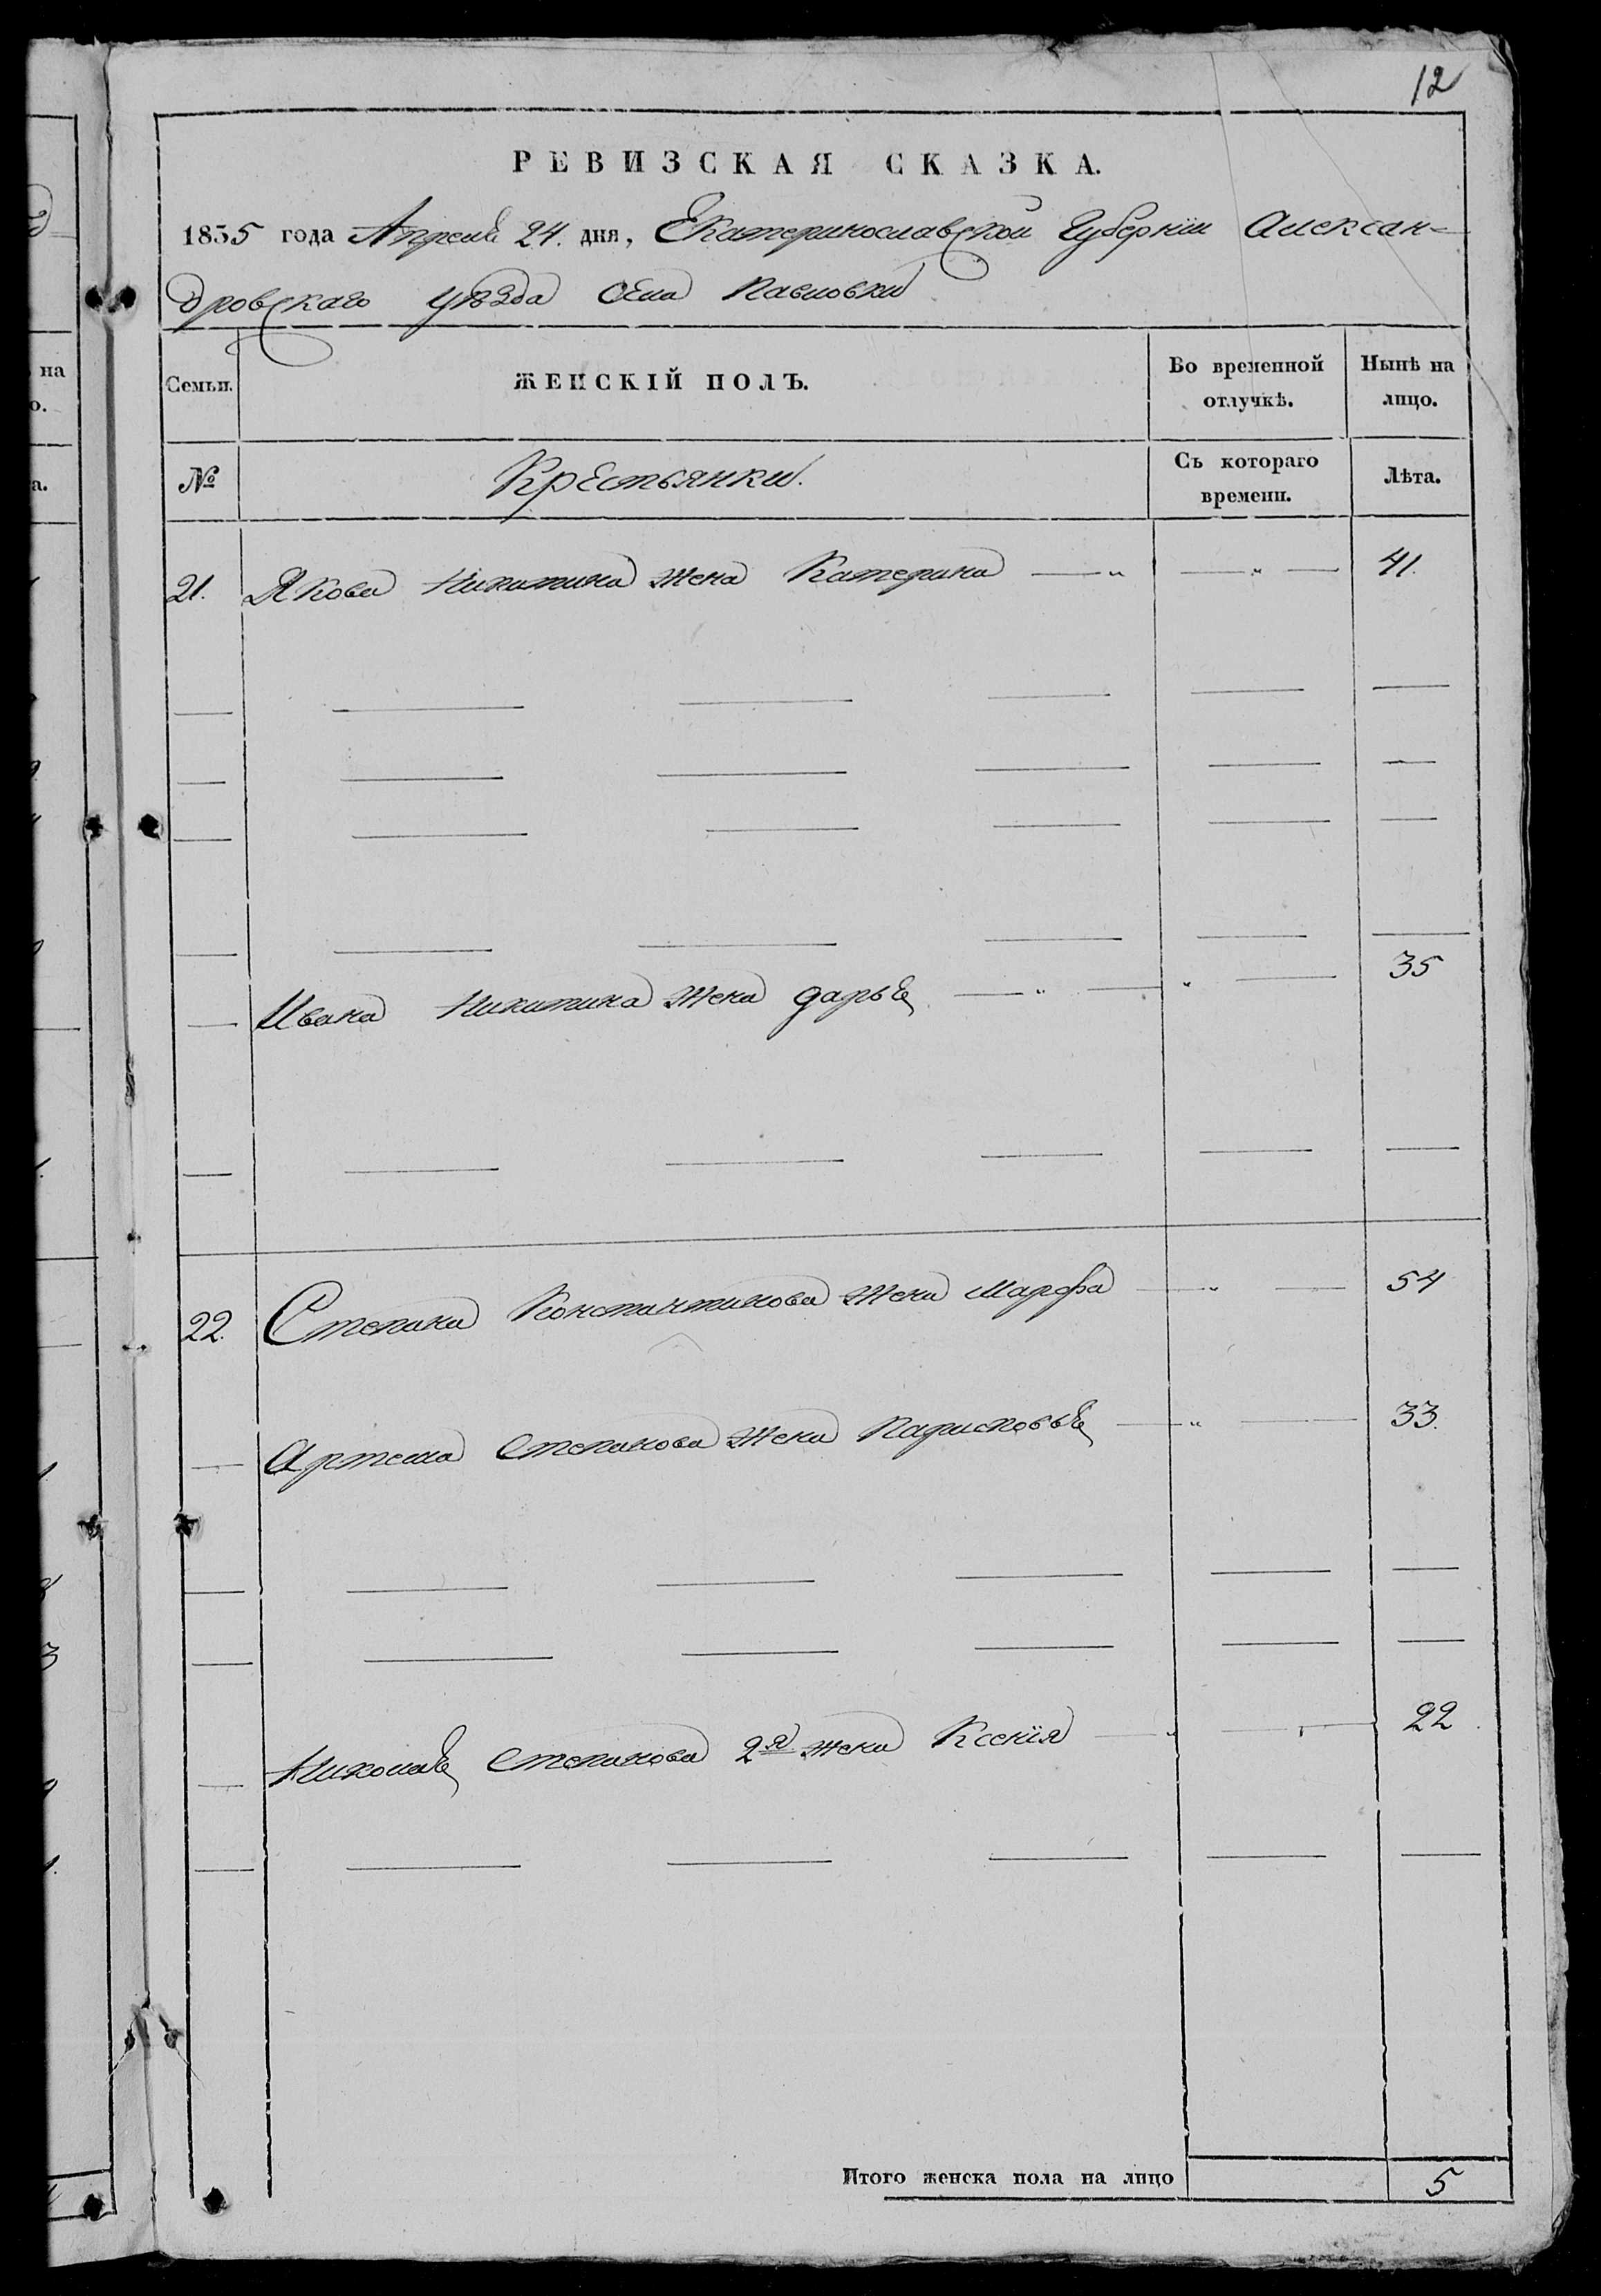 12
РЕВИЗСКАЯ СКАЗКА.
1835 года Апреля 24. дня, Екатеринославской Губернїи Алексан=
дровскаго уѣзда Села Павловки
Семьи.
ЖЕНСКІЙ ПОЛЪ.
Во временной отлучкѣ.
Нынѣ на лицо.
№
Крестьянки.
Съ котораго времени.
Лѣта.
21. Якова Никитина жена Катерина — „ — „ — 41.
Ивана Никитина жена Дарья — „ — „ — 35
22. Степана Константинова жена Марфа — „ — 54
Артема Степанова жена Парасковья — „ — 33.
Николая Степанова 2я жена Ксенїя — „ — 22
Итого женска пола на лицо 5
на
о.
а.